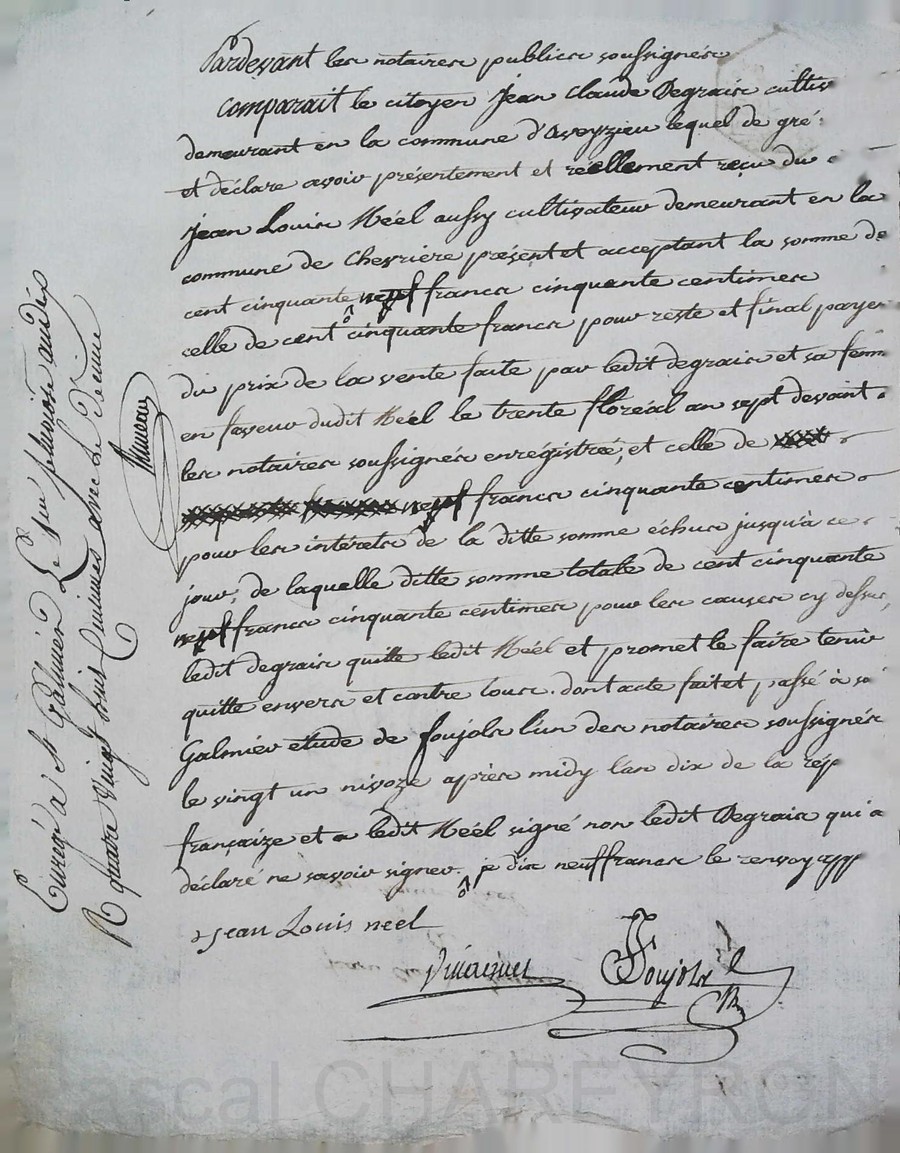 Pardevant les notaires publics soussignés
comparait le citoyen Jean Claude Degrais cultiv
demeurant en la commune d'Aveyzieu lequel de gré
et déclare avoir présentement et réellement reçu du c
Jean Louis Néel aussy cultivateur demeurant en la
commune de Chevrière présent et acceptant la somme de
cent cinquante neuf francs cinquante centimes
celle de cent cinquante francs pour reste et final payem
du prix de la vente faite par ledit degrais et sa femm
en faveur dudit Néel le trente floréal an sept devant
les notaires soussignés enrégistrée, et celle de
neuf francs cinquante centimes
pour les intérets de la ditte somme échus jusqu'à ce
jour, de laquelle ditte somme totale de cent cinquante
neuf francs cinquante centimes pour les causes cy dessus,
ledit degrais quitte ledit Néel et promet le faire tenir
quitte envers et contre tous. dont acte fait et passé à st
Galmier étude de foujols l'un des notaires soussignés
le vingt un nivoze après midy lan dix de la rép
françaize et a ledit Néel signé non ledit Degrais qui a
déclaré ne savoir signer. je dis neuf francs le renvoy app
Jean Louis neel
Foujols
Enregé a St Galmier Le six pluviose an dix
R quatre vingt huit centimes avec le decime